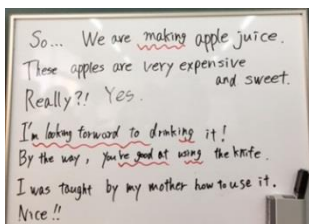 So... We are making apple juice.
These apples are very expensive
and sweet.
Really?! Yes.
I'm looking forward to drinking it!
By the way, you're good at using the knife.
I was taught by my mother how to use it.
Nice!!